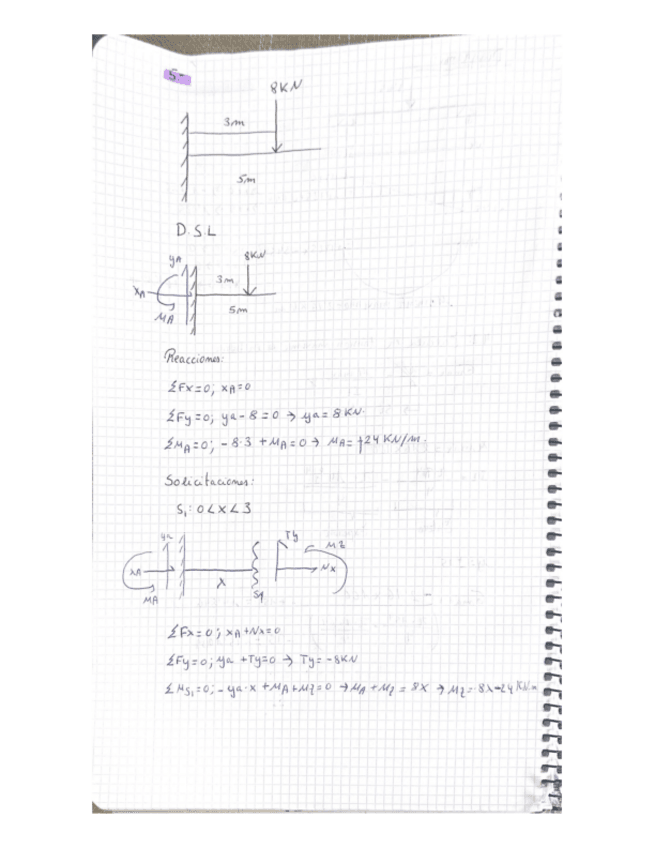 5-
8KN
3m
5m
D.S.L
YA
8KN
3m
XA
5m
MA
Reacciones:
ΣFx=0; XA=0
ΣFy=0; ya-8=0 → ya=8KN.
ΣMA=0; -8·3+MA=0 → MA=+24 KN/m.
Solicitaciones:
S₁: 0<x<3
ya
Ty
Mz
XA
Nx
x
MA
S₁
ΣFx=0; XA+Nx=0
ΣFy=0; ya+Ty=0 → Ty=-8KN
ΣMS₁=0; -ya·x+MA+Mz=0 → MA+Mz=8x → Mz=8x-24 KN·m